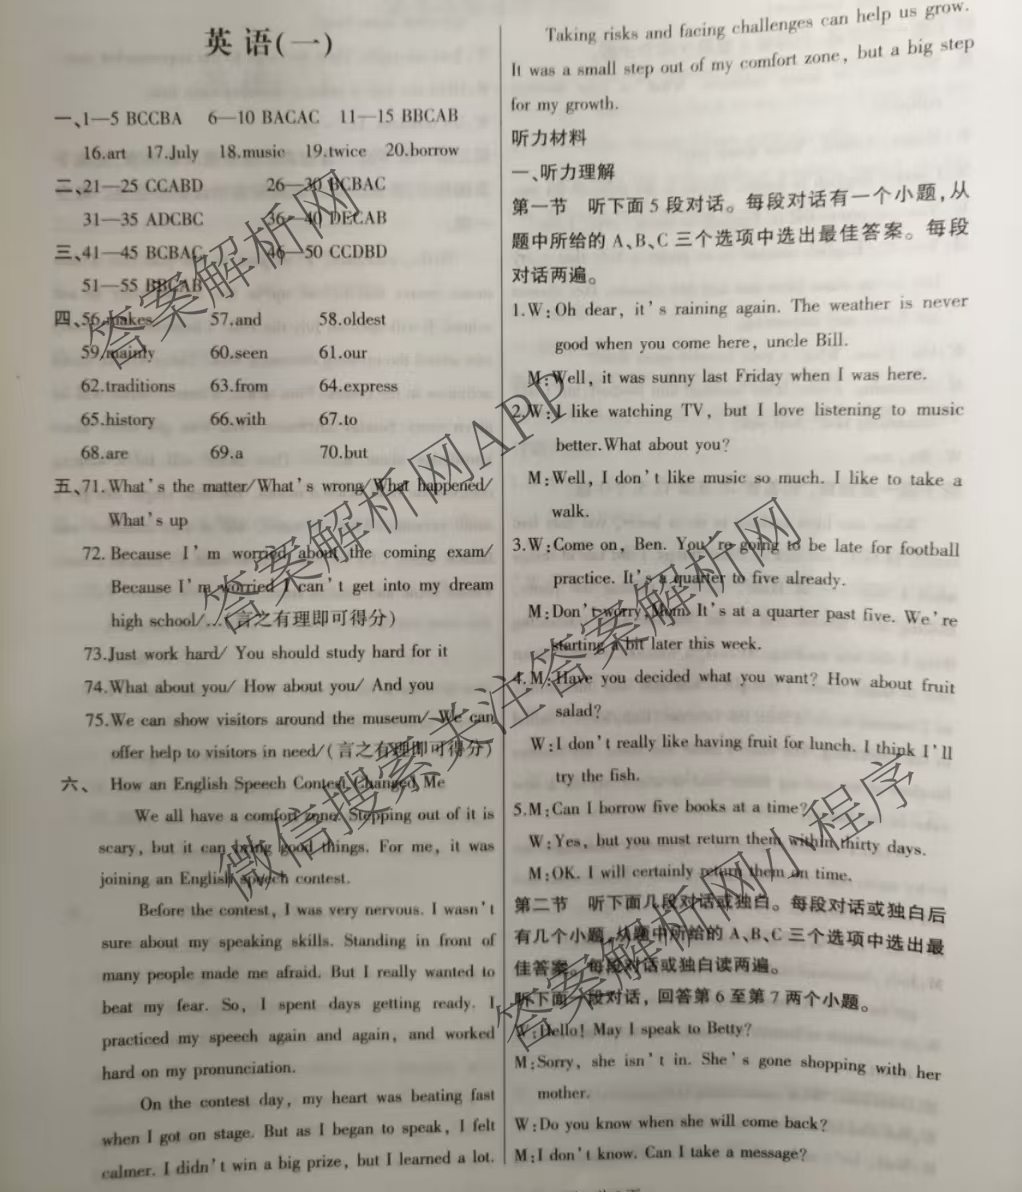 英语(一)
一、1—5 BCCBA 6—10 BACAC 11—15 BBCAB
16.art 17.July 18.music 19.twice 20.borrow
二、21—25 CCABD 26—30 BCBAC
31—35 ADCBC 36—40 DECAB
三、41—45 BCBAC 46—50 CCDBD
51—55 BBCAB
四、56.makes 57.and 58.oldest
59.mainly 60.seen 61.our
62.traditions 63.from 64.express
65.history 66.with 67.to
68.are 69.a 70.but
五、71.What's the matter/What's wrong/What happened/
What's up
72.Because I'm worried about the coming exam/
Because I'm worried I can't get into my dream
high school/…(言之有理即可得分)
73.Just work hard/ You should study hard for it
74.What about you/ How about you/ And you
75.We can show visitors around the museum/ We can
offer help to visitors in need/(言之有理即可得分)
六、 How an English Speech Contest Changed Me
We all have a comfort zone. Stepping out of it is
scary, but it can bring good things. For me, it was
joining an English speech contest.
Before the contest, I was very nervous. I wasn't
sure about my speaking skills. Standing in front of
many people made me afraid. But I really wanted to
beat my fear. So, I spent days getting ready. I
practiced my speech again and again, and worked
hard on my pronunciation.
On the contest day, my heart was beating fast
when I got on stage. But as I began to speak, I felt
calmer. I didn't win a big prize, but I learned a lot.
Taking risks and facing challenges can help us grow.
It was a small step out of my comfort zone, but a big step
for my growth.
听力材料
一、听力理解
第一节 听下面5段对话。每段对话有一个小题,从
题中所给的A、B、C三个选项中选出最佳答案。每段
对话两遍。
1.W:Oh dear, it's raining again. The weather is never
good when you come here, uncle Bill.
M:Well, it was sunny last Friday when I was here.
2.W:I like watching TV, but I love listening to music
better.What about you?
M:Well, I don't like music so much. I like to take a
walk.
3.W:Come on, Ben. You're going to be late for football
practice. It's a quarter to five already.
M:Don't worry,Mum. It's at a quarter past five. We're
starting a bit later this week.
4.M:Have you decided what you want? How about fruit
salad?
W:I don't really like having fruit for lunch. I think I'll
try the fish.
5.M:Can I borrow five books at a time?
W:Yes, but you must return them within thirty days.
M:OK. I will certainly return them on time.
第二节 听下面几段对话或独白。每段对话或独白后
有几个小题,从题中所给的A、B、C三个选项中选出最
佳答案。每段对话或独白读两遍。
听下面一段对话,回答第6至第7两个小题。
W:Hello! May I speak to Betty?
M:Sorry, she isn't in. She's gone shopping with her
mother.
W:Do you know when she will come back?
M:I don't know. Can I take a message?
答案解析网
答案解析网APP
微信搜索关注答案解析网
答案解析网小程序